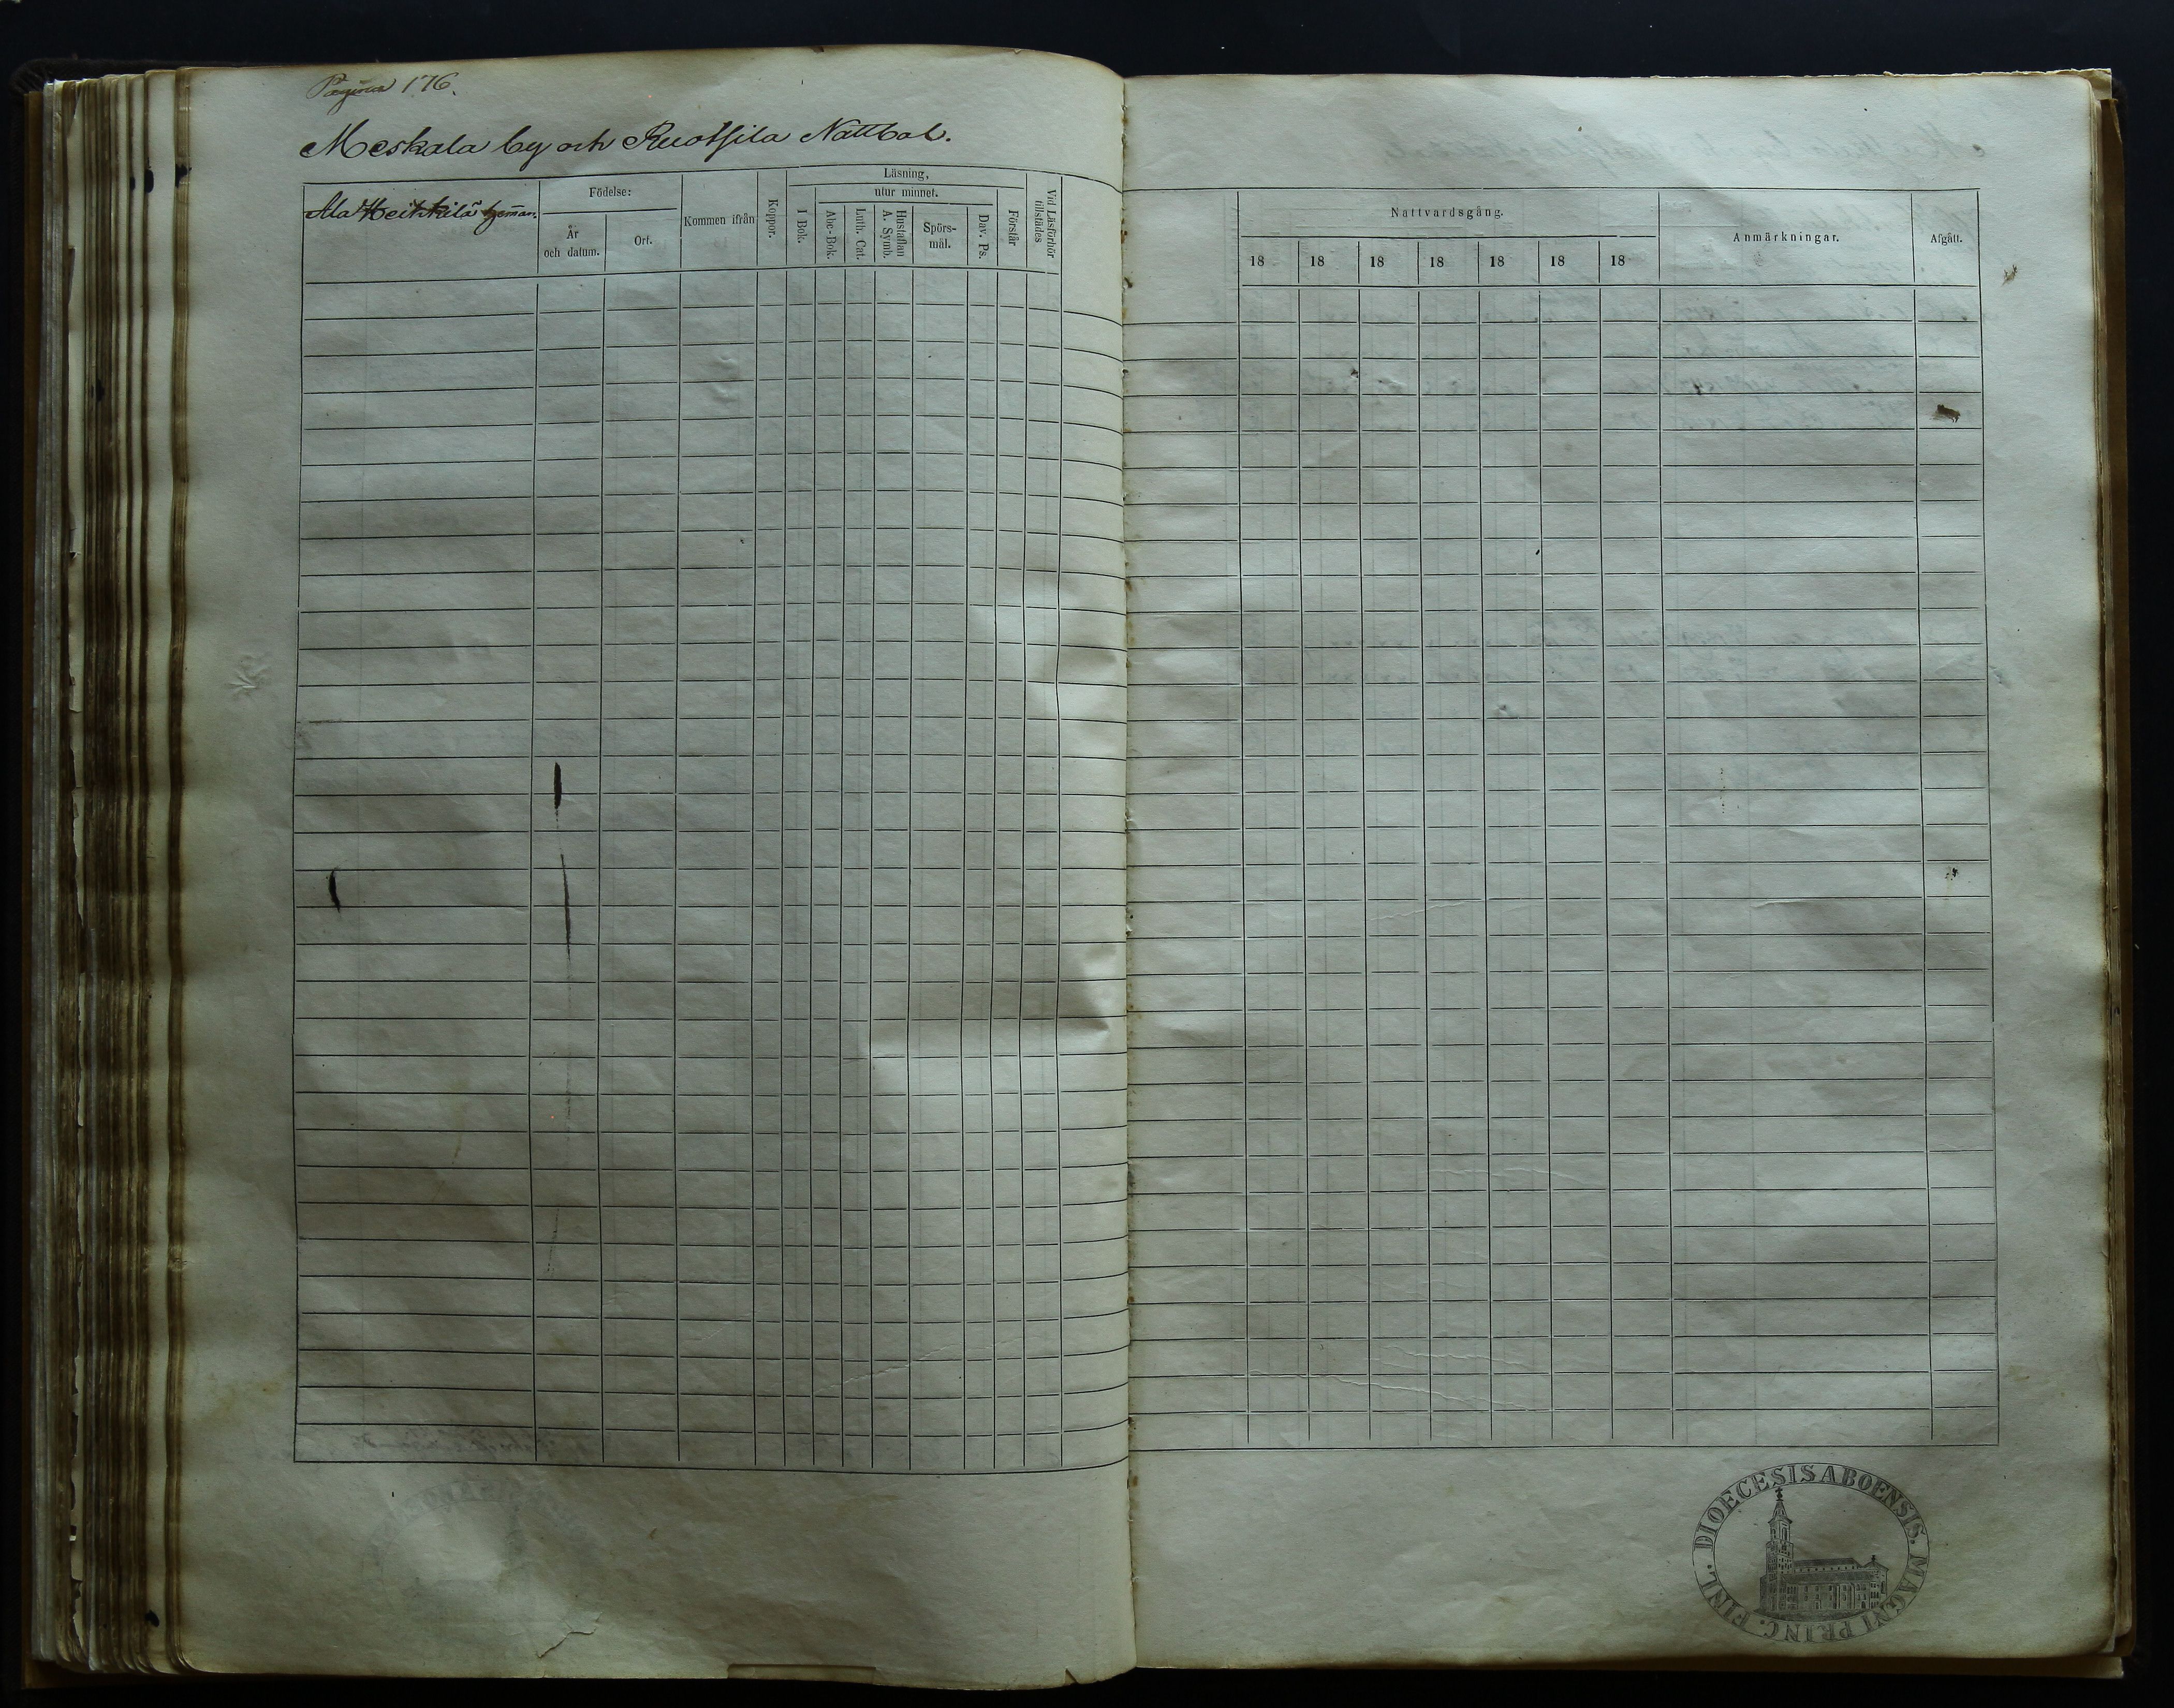 Pagina 176.
Meskala by och Ruotsila Nattbol.
Ala Heikkilä hem̄an.
Födelse:
År
och datum.
Ort.
Kommen ifrån
Koppor.
Läsning,
utur minnet.
I Bok.
Abc-Bok.
Luth. Cat.
Hustaflan
A. Symb.
Spörs-
mål.
Dav. Ps.
Förstår
Vid Läsförhör
tillstädes
Nattvardsgång.
18 18 18 18 18 18 18
Anmärkningar.
Afgått.
DIOECESIS ABOENSIS. MAGNI PRINC. FINL.